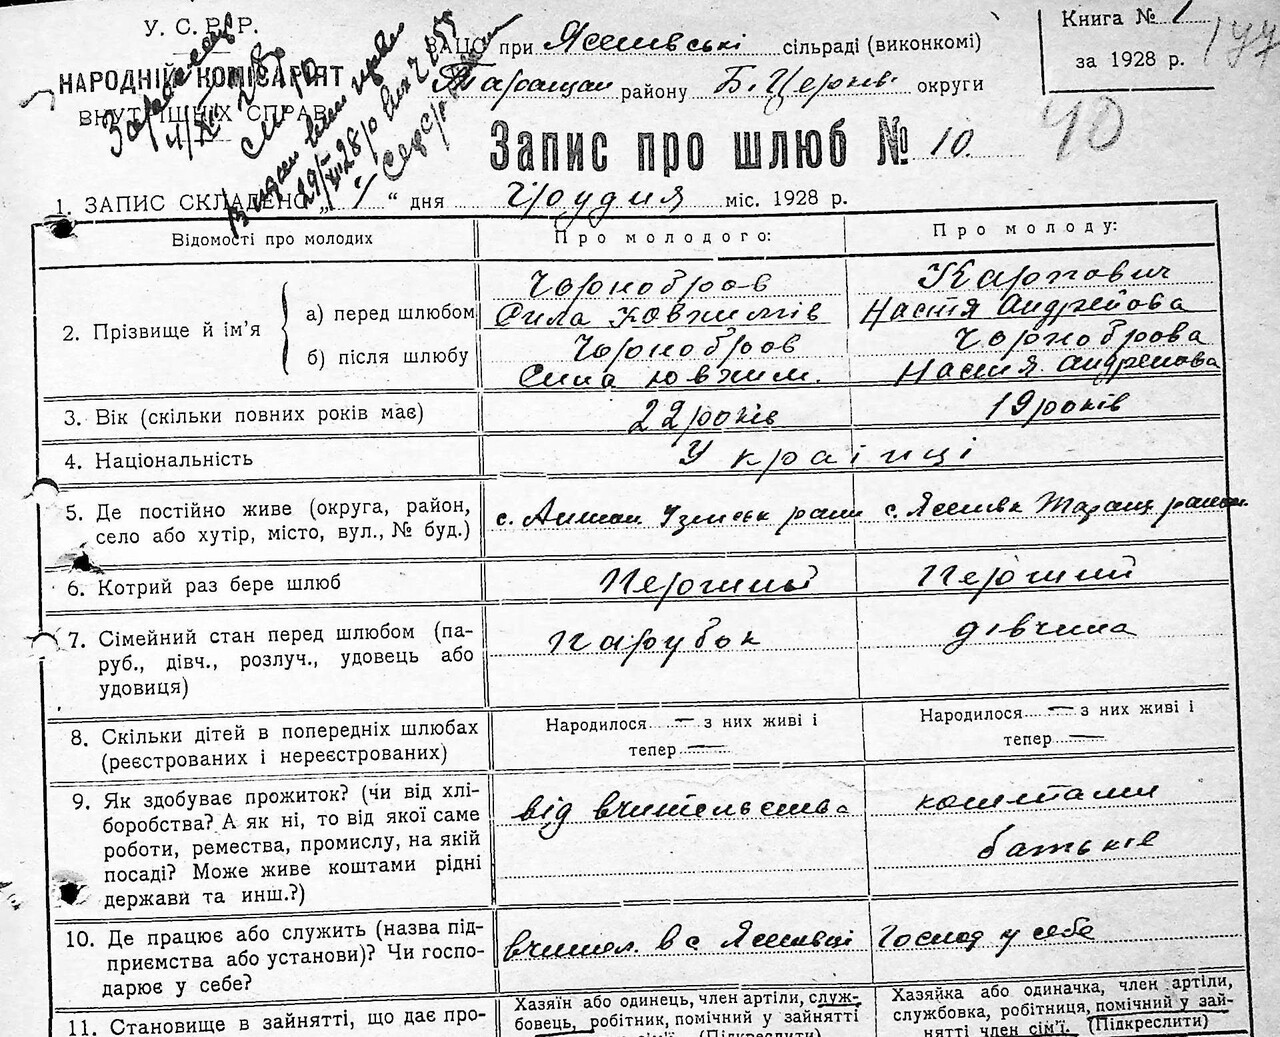 У. С. Р. Р.
НАРОДНІЙ КОМІСАРІЯТ
ВНУТРІШНІХ СПРАВ
ЗАЦС при Ясенівські сільраді (виконкомі)
Таращан району Б. Церків округи
Книга № 1
за 1928 р.
177
40
Запис про шлюб № 10.
1. ЗАПИС СКЛАДЕНО „ 1 “ дня Грудня міс. 1928 р.
Відомості про молодих
Про молодого:
Про молоду:
2. Прізвище й ім'я
а) перед шлюбом
Чорнобров
Сила Ювхимів
Карпович
Настя Андрейова
б) після шлюбу
Чорнобров
Сила Ювхим.
Чорноброва
Настя Андрейова
3. Вік (скільки повних років має)
22 років
19 років
4. Національність
Українці
5. Де постійно живе (округа, район,
село або хутір, місто, вул., № буд.)
с.
с. Ясенівка Таращ. району
6. Котрий раз бере шлюб
Перший
Перший
7. Сімейний стан перед шлюбом (па-
руб., дівч., розлуч., удовець або
удовиця)
парубок
дівчина
8. Скільки дітей в попередніх шлюбах
(реєстрованих і нереєстрованих)
Народилося — з них живі і
тепер —
Народилося — з них живі і
тепер —
9. Як здобуває прожиток? (чи від хлі-
боробства? А як ні, то від якої саме
роботи, ремества, промислу, на якій
посаді? Може живе коштами рідні
держави та инш.?)
від вчительства
коштами
батьків
10. Де працює або служить (назва під-
приємства або установи)? Чи госпо-
дарює у себе?
вчител. в с. Ясенівці
Господ у себе
11. Становище в зайнятті, що дає про-
Хазяїн або одинець, член артіли, служ-
бовець, робітник, помічний у зайнятті
член сім'ї. (Підкреслити)
Хазяйка або одиначка, член артіли,
службовка, робітниця, помічний у зай-
нятті член сім'ї. (Підкреслити)